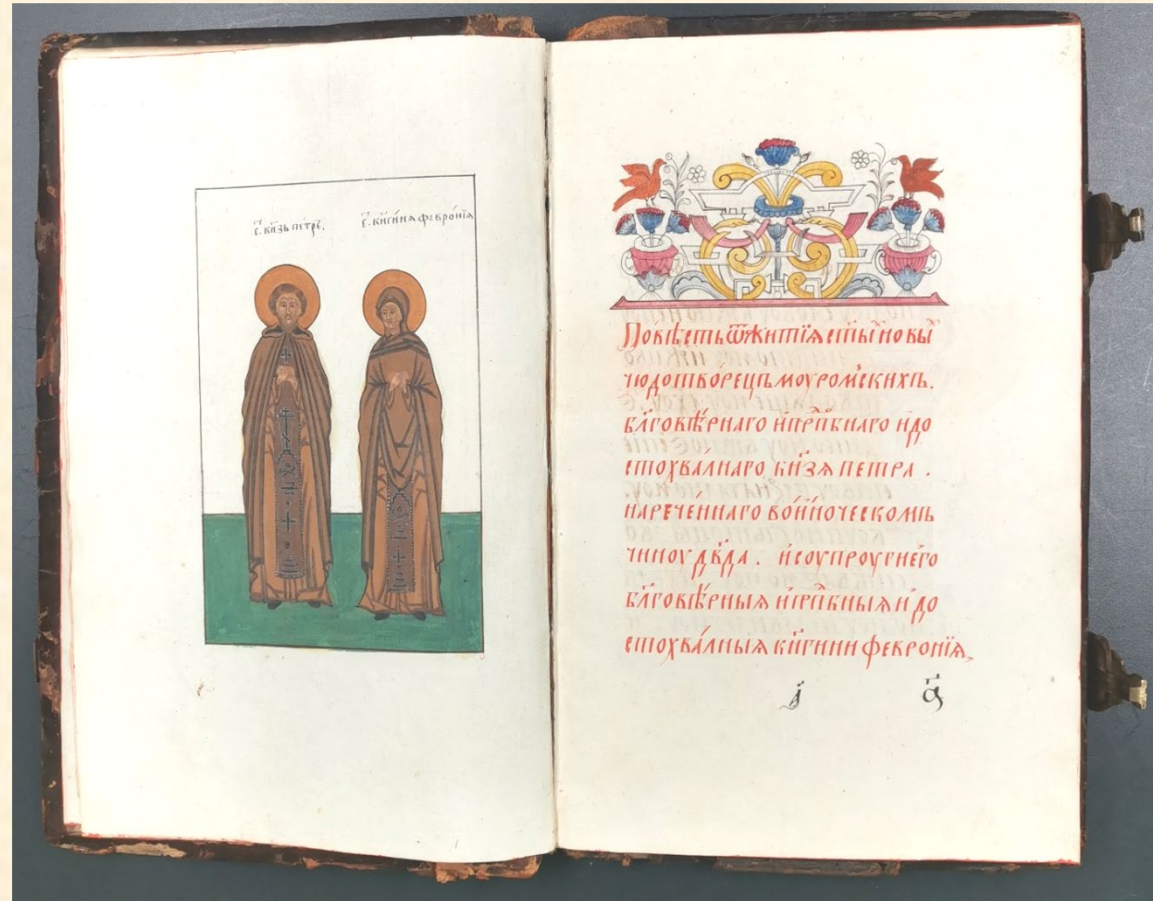 с҃. кн҃зь пе́тръ.
с҃. кнѧги́нѧ феврон́їѧ
По́вѣсть ѿжитїѧ ст҃ы́ но вы́
чюдотво́рецъ моуро́мскихъ.
бл҃гове́рнаго ипрп҃бнаго идо
стохва́лнаго кн҃зѧ петра .
нарече́ннаго во и́ноческомъ
чиноу дв҃да . исоупроугиег҆о̀
бл҃гове́рныѧ ипрп҃бныѧ идо
стохва́лныѧ кн҃гини февронїѧ,